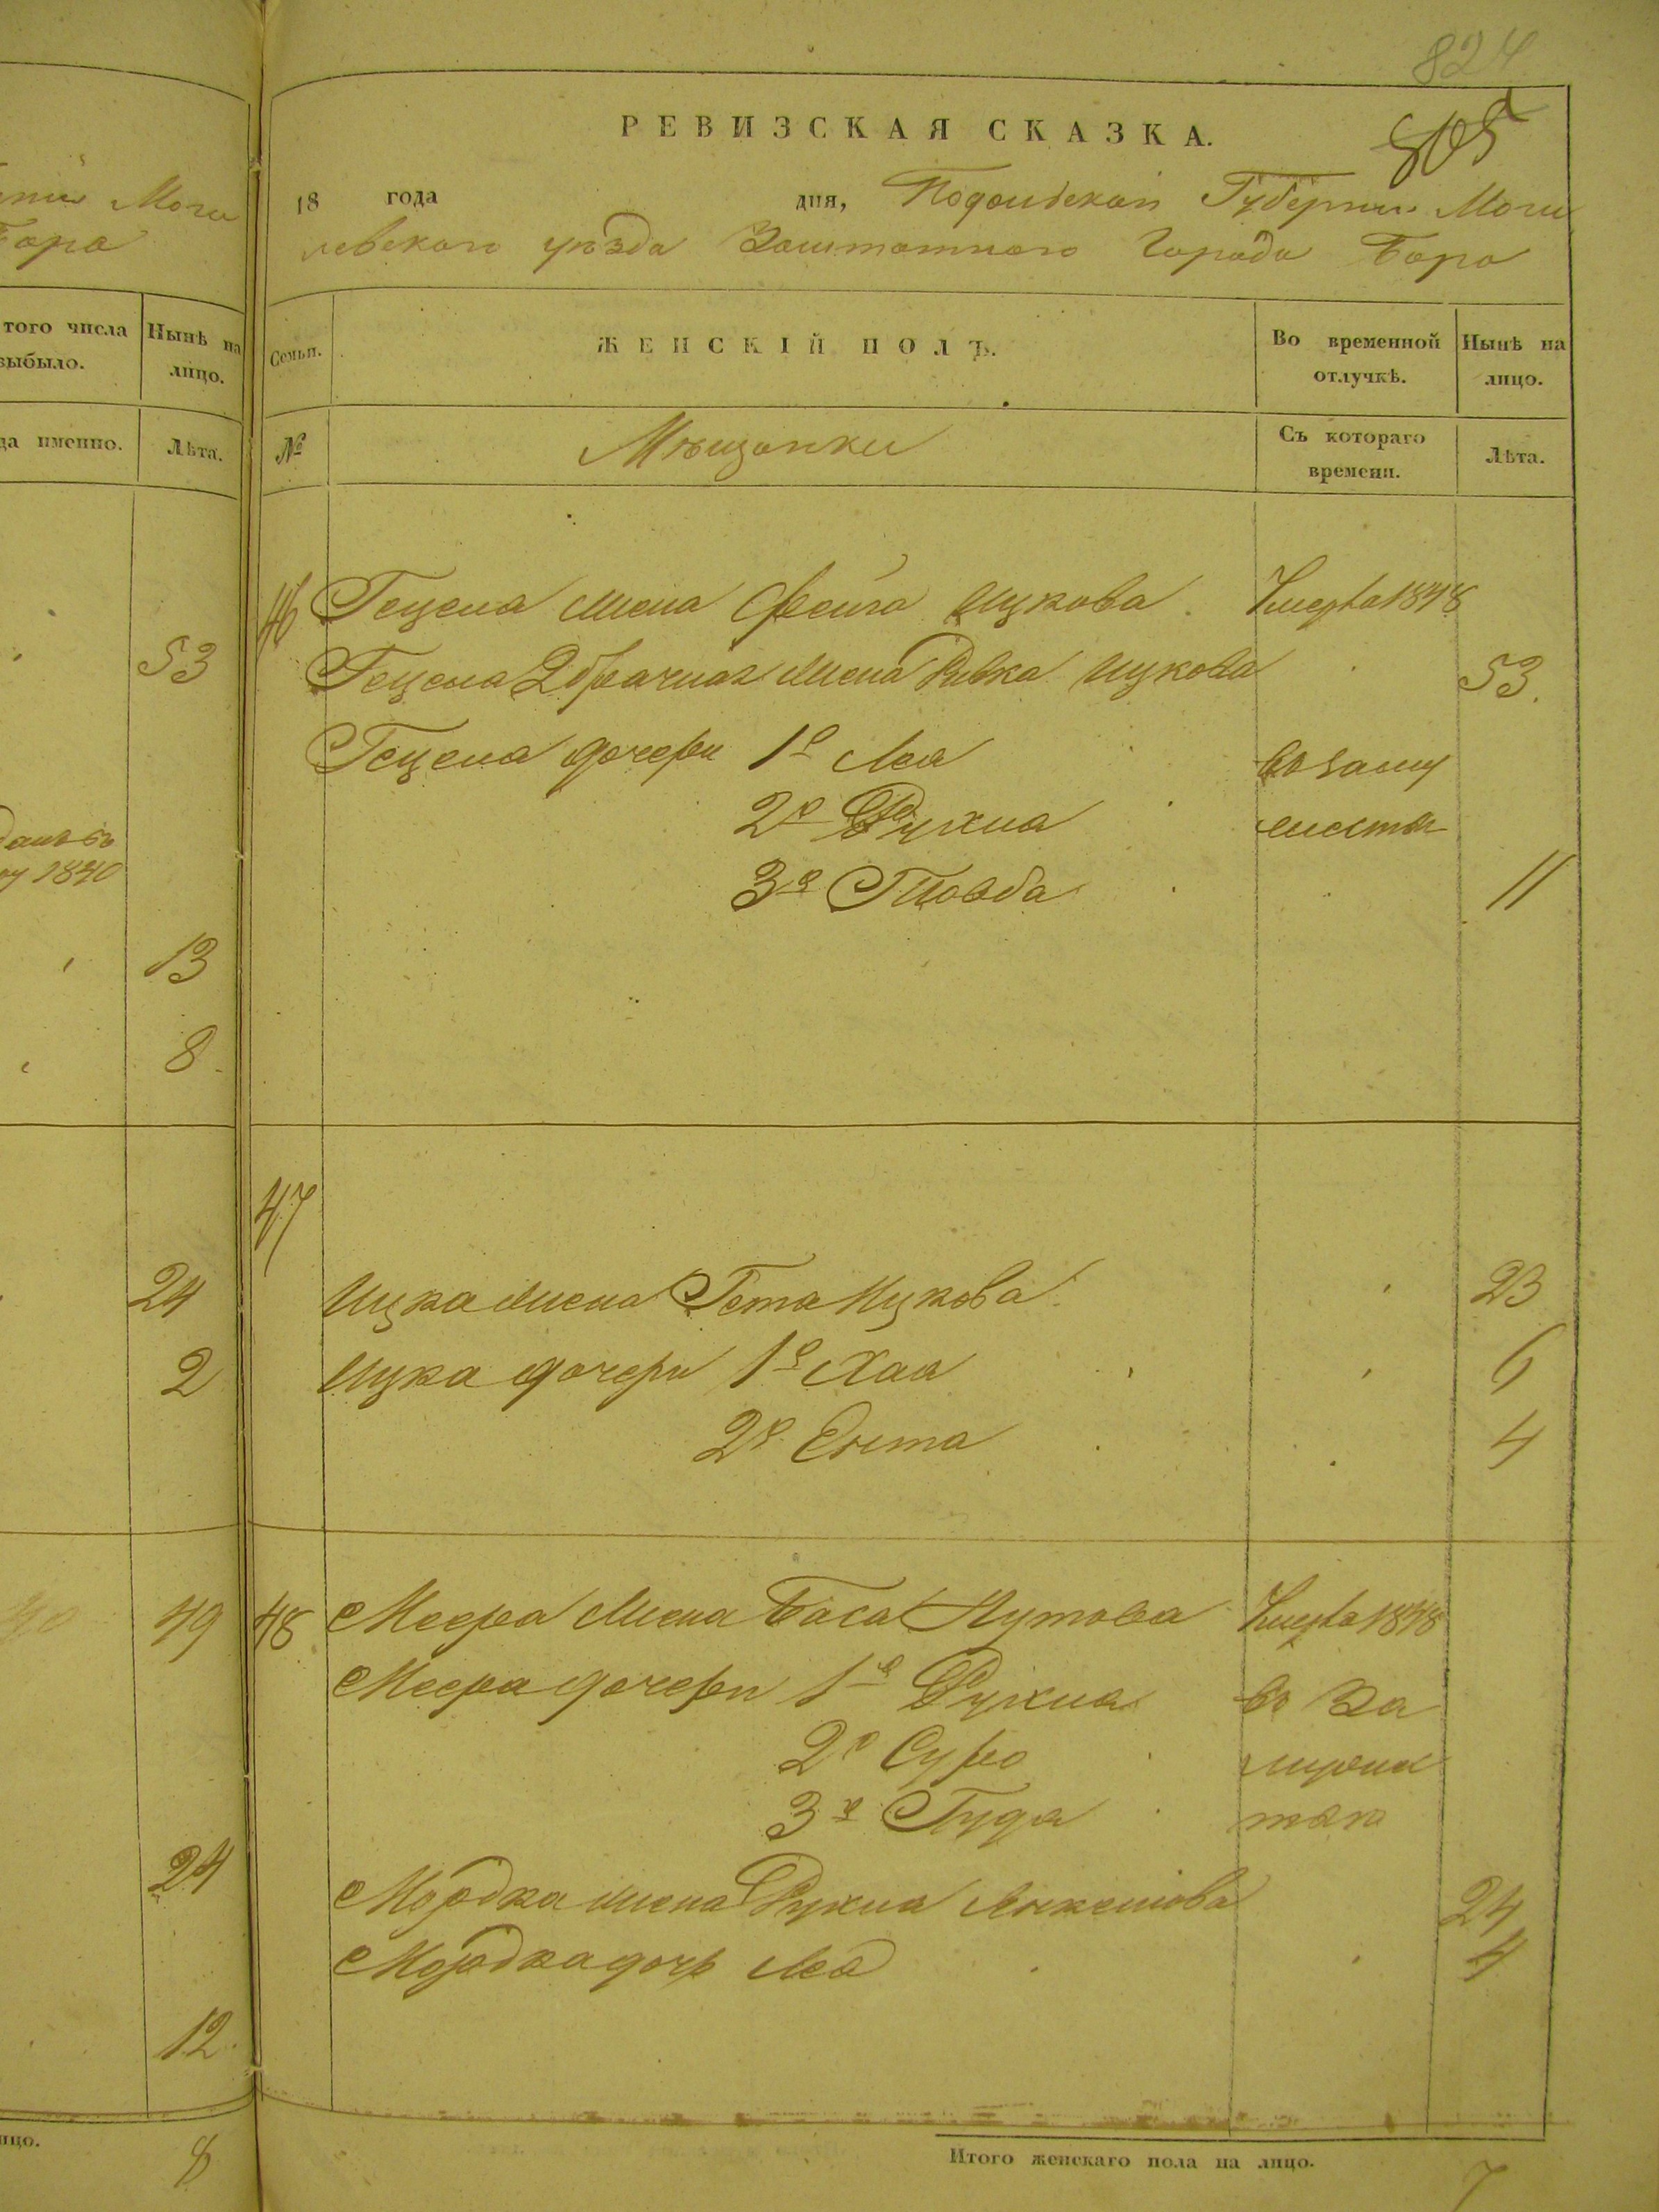 824
РЕВИЗСКАЯ СКАЗКА.
805
18 года дня, Подольской Губернии Моги
левскаго уѣзда Заштатнаго Города Бара
Семьи.
ЖЕНСКІЙ ПОЛЪ.
Во временной отлучкѣ.
Нынѣ на лицо.
№
Мѣщанки
Съ котораго времени.
Лѣта.
46 Гецеля жена Фейга Ицкова. Умерла 1848
Гецеля 2 брачная жена Ривка Ицкова 53.
Гецеля дочери 1я Лея въ заму
2я Рухля
3я 11
47
Ицка жена Гета Ицкова 23
Ицка дочери 1я Хая 6
2я Ента 4
48 Меера жена Бася Нутова Умерла 1848
Меера дочери 1я Рухля въ За
2я Сура
3я Гудя
Мордка жена Рухля Янкелиова 24
Мордка дочь Лея 4
Итого женскаго пола на лицо. 7
Моги
Бара
того числа выбыло.
Нынѣ на лицо.
да именно.
Лѣта.
53
1840
13
8
24
2
49
24
12
лицо. 8